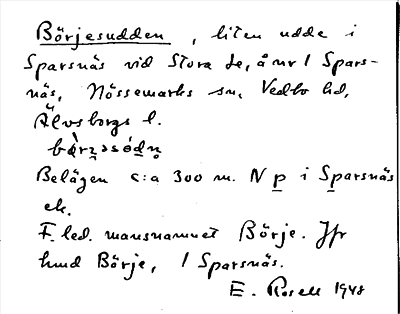 Börjesudden, liten udde i
Sparsnäs vid Stora Le, å nr 1 Spars-
näs, Nössemarks sn, Vedbo hd,
Älvsborgs l.
Belägen c:a 300 m. N p i Sparsnäs
ek.
F.led. mansnamnet Börje. Jfr
hmd Börje, 1 Sparsnäs.
E. Rosell 1948